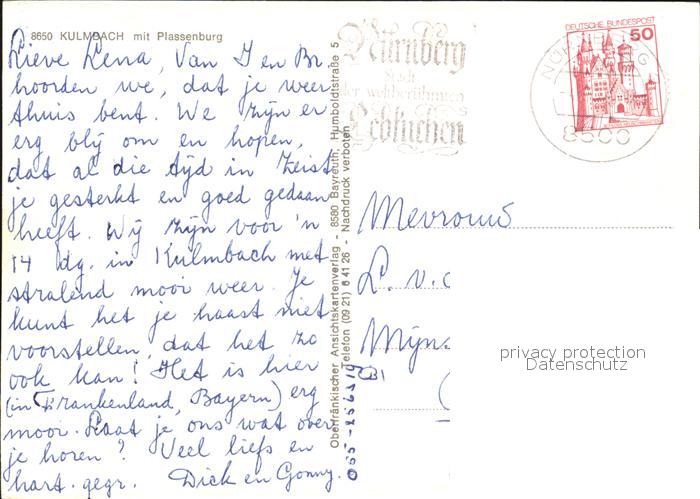 8650 KULMBACH mit Plassenburg
Lieve Lena, Van J en Br.
hoorden we, dat je weer
thuis bent. We zijn er
erg blij om en hopen,
dat al die tijd in Zeist
je gesterkt en goed gedaan
heeft. Wij zijn voor 'n
14 dg. in Kulmbach met
stralend mooi weer. Je
kunt het je haast niet
voorstellen, dat het zo
ook kan! Het is hier
(in Frankenland, Bayern) erg
mooi. Laat je ons wat over
je horen? Veel liefs en
hart. gegr. Dick en Gonny.
Oberfränkischer Ansichtskartenverlag - 8580 Bayreuth, Humboldtstraße 5
Telefon (09 21) 6 41 26 - Nachdruck verboten
Nürnberg
Stadt
der weltberühmten
Lebkuchen
DEUTSCHE BUNDESPOST
50
NÜRNBERG
8500
Mevrouw
L. v.
privacy protection
Datenschutz